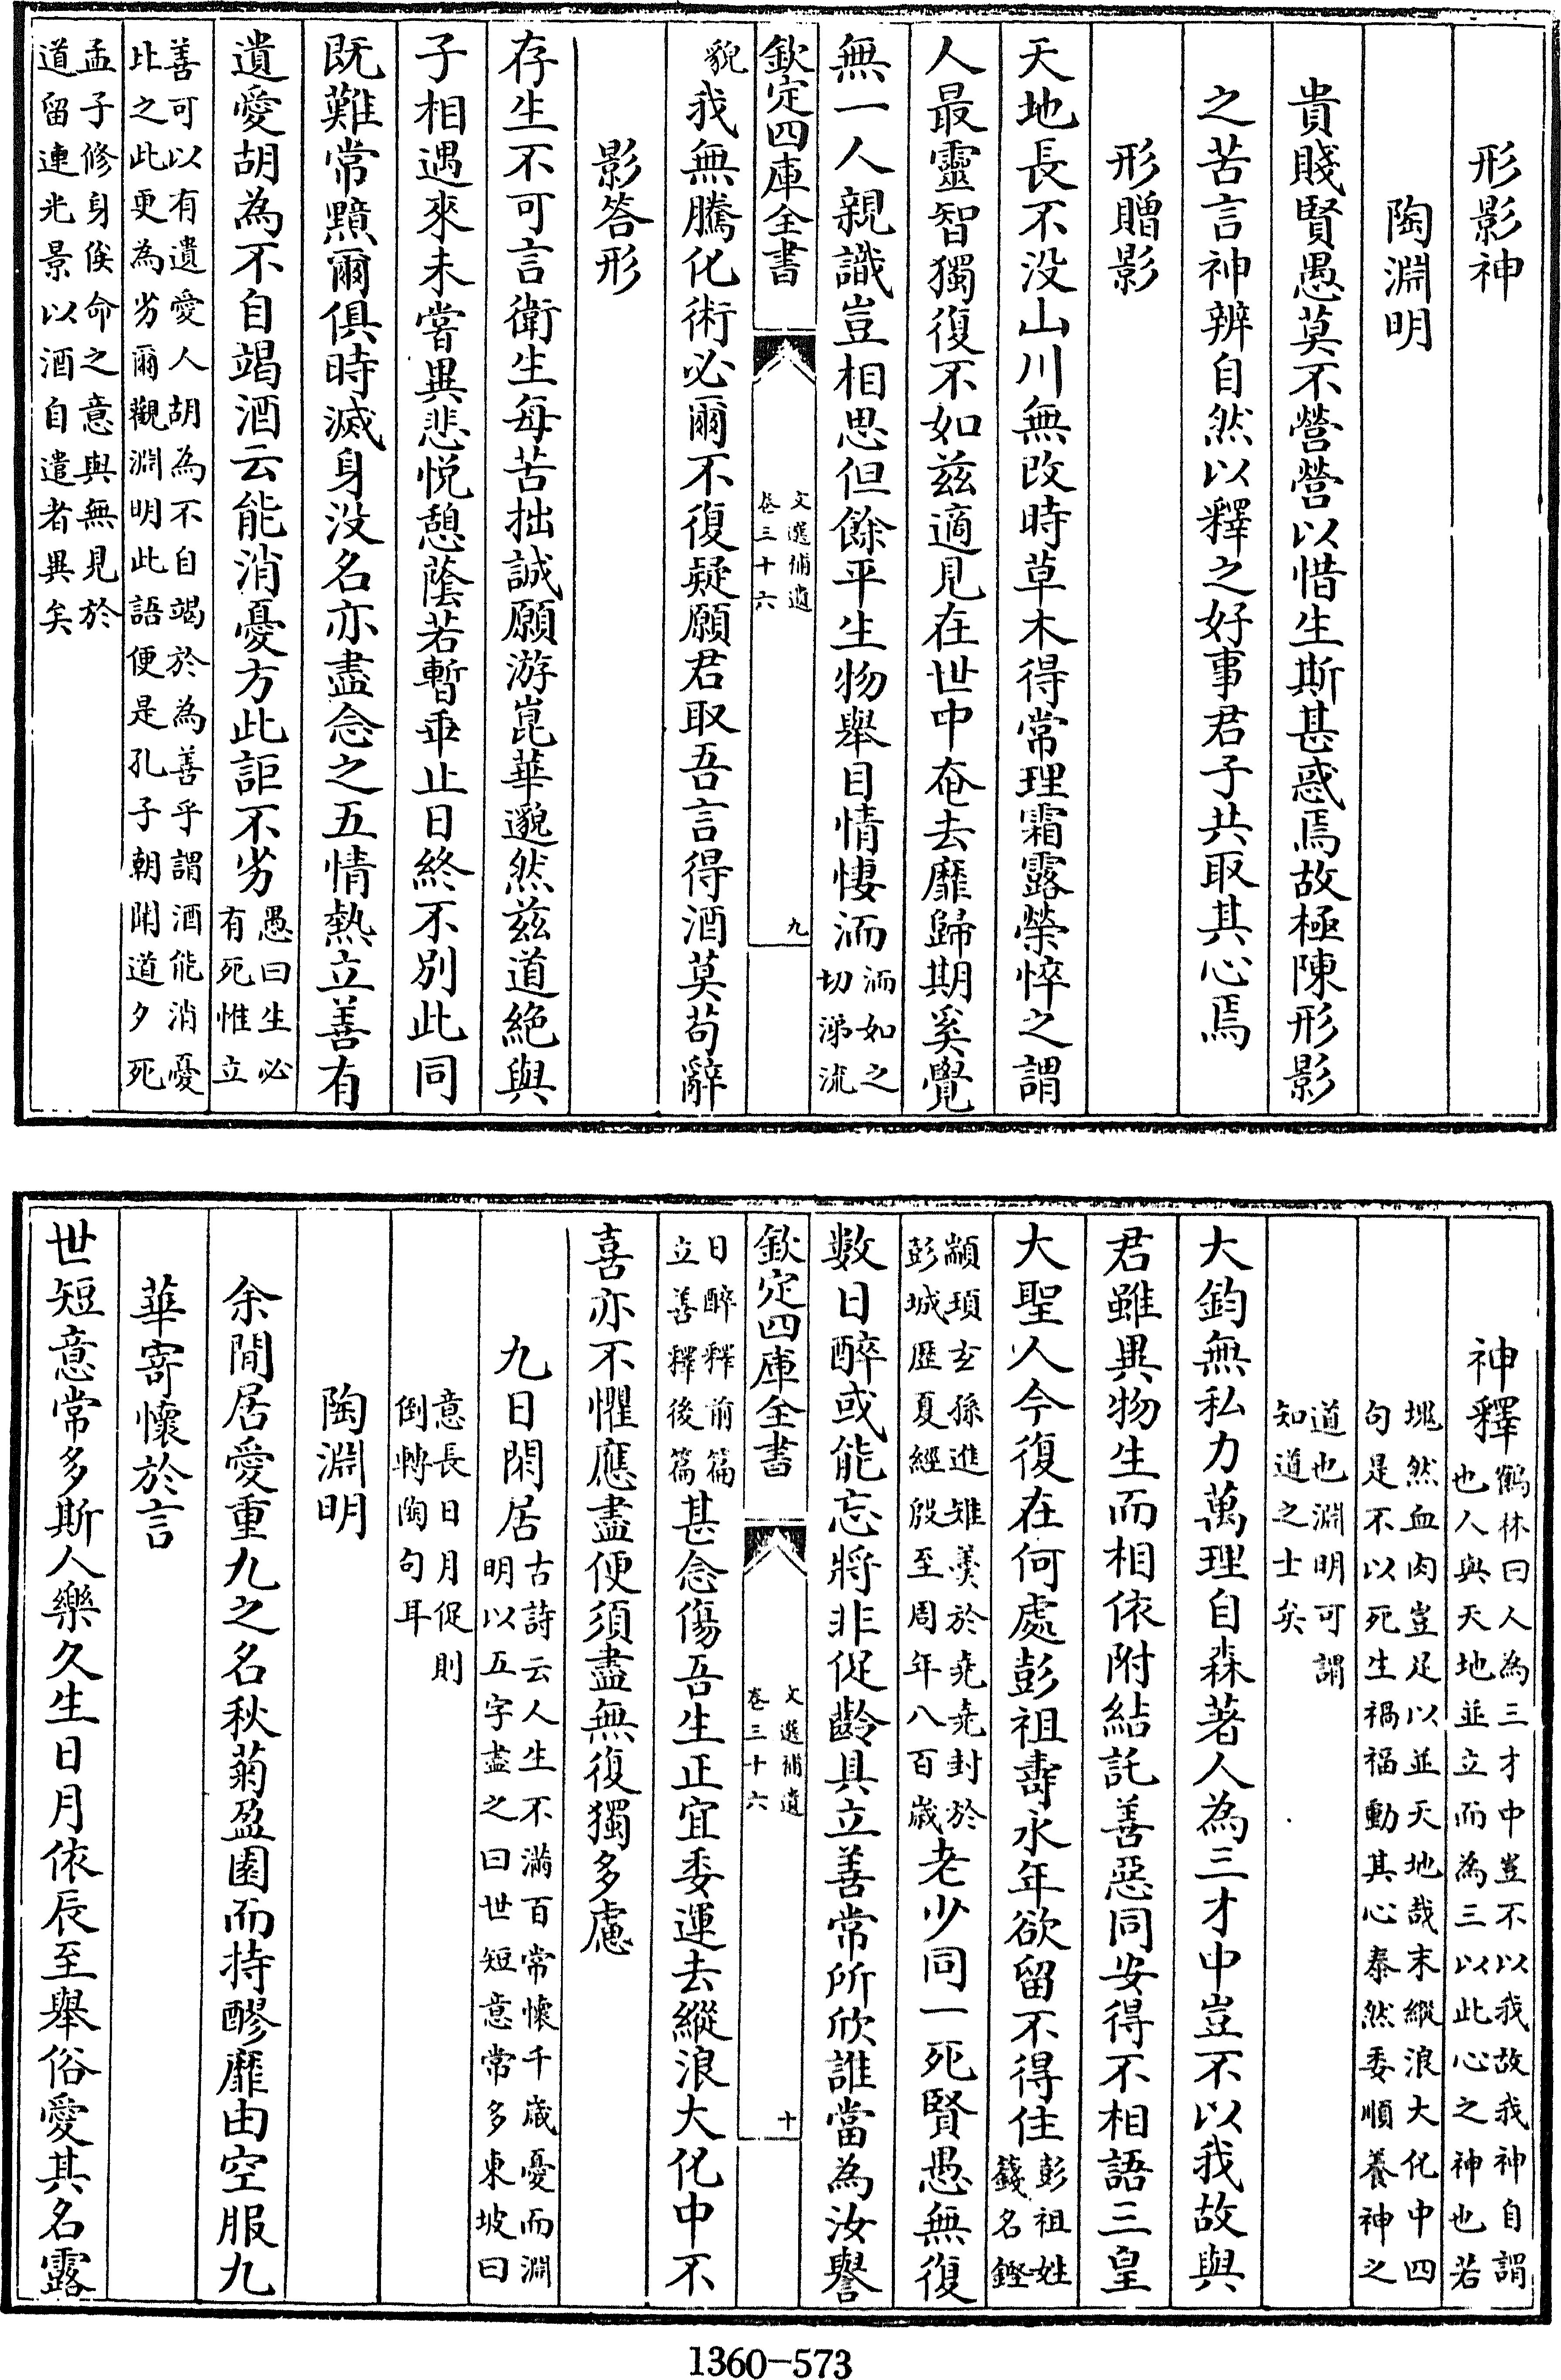 形影神
陶淵明
貴賤賢愚莫不營營以惜生斯甚惑焉故極陳形影
之苦言神辨自然以釋之好事君子共取其心焉
形贈影
天地長不没山川無改時草木得常理霜露榮悴之謂
人最靈智獨復不如兹適見在世中奄去靡歸期奚覺
無一人親識豈相思但餘平生物舉目情悽洏洏如之
切涕流
欽定四庫全書
文選補遺
卷三十六
九
貌我無騰化術必爾不復疑願君取吾言得酒莫苟辭
影答形
存生不可言衛生每苦拙誠願游崑華邈然兹道絶與
子相遇來未嘗異悲悦憩蔭若暫乖止日終不別此同
既難常黯爾俱時滅身没名亦盡念之五情熱立善有
遺愛胡為不自竭酒云能消憂方此詎不劣愚曰生必
有死惟立
善可以有遺愛人胡為不自竭於為善乎謂酒能消憂
比之此更為劣爾觀淵明此語便是孔子朝聞道夕死
孟子修身俟命之意與無見於
道留連光景以酒自遣者異矣
神釋鶴林曰人為三才中豈不以我故我神自謂
也人與天地並立而為三以此心之神也若
塊然血肉豈足以並天地哉末縱浪大化中四
句是不以死生禍福動其心泰然委順養神之
道也淵明可謂
知道之士矣
大鈞無私力萬理自森著人為三才中豈不以我故與
君雖異物生而相依附結託善惡同安得不相語三皇
大聖人今復在何處彭祖壽永年欲留不得住彭祖姓
籛名鏗
顓頊玄孫進雉羹於堯堯封於
彭城歴夏經殷至周年八百歳老少同一死賢愚無復
數日醉或能忘將非促齡具立善常所欣誰當為汝譽
欽定四庫全書
文選補遺
卷三十六
十
日醉釋前篇
立善釋後篇甚念傷吾生正宜委運去縱浪大化中不
喜亦不懼應盡便須盡無復獨多慮
九日閑居古詩云人生不滿百常懷千歳憂而淵
明以五字盡之曰世短意常多東坡曰
意長日月促則
倒轉陶句耳
陶淵明
余閒居愛重九之名秋菊盈園而持醪靡由空服九
華寄懷於言
世短意常多斯人樂久生日月依辰至舉俗愛其名露
1360-573